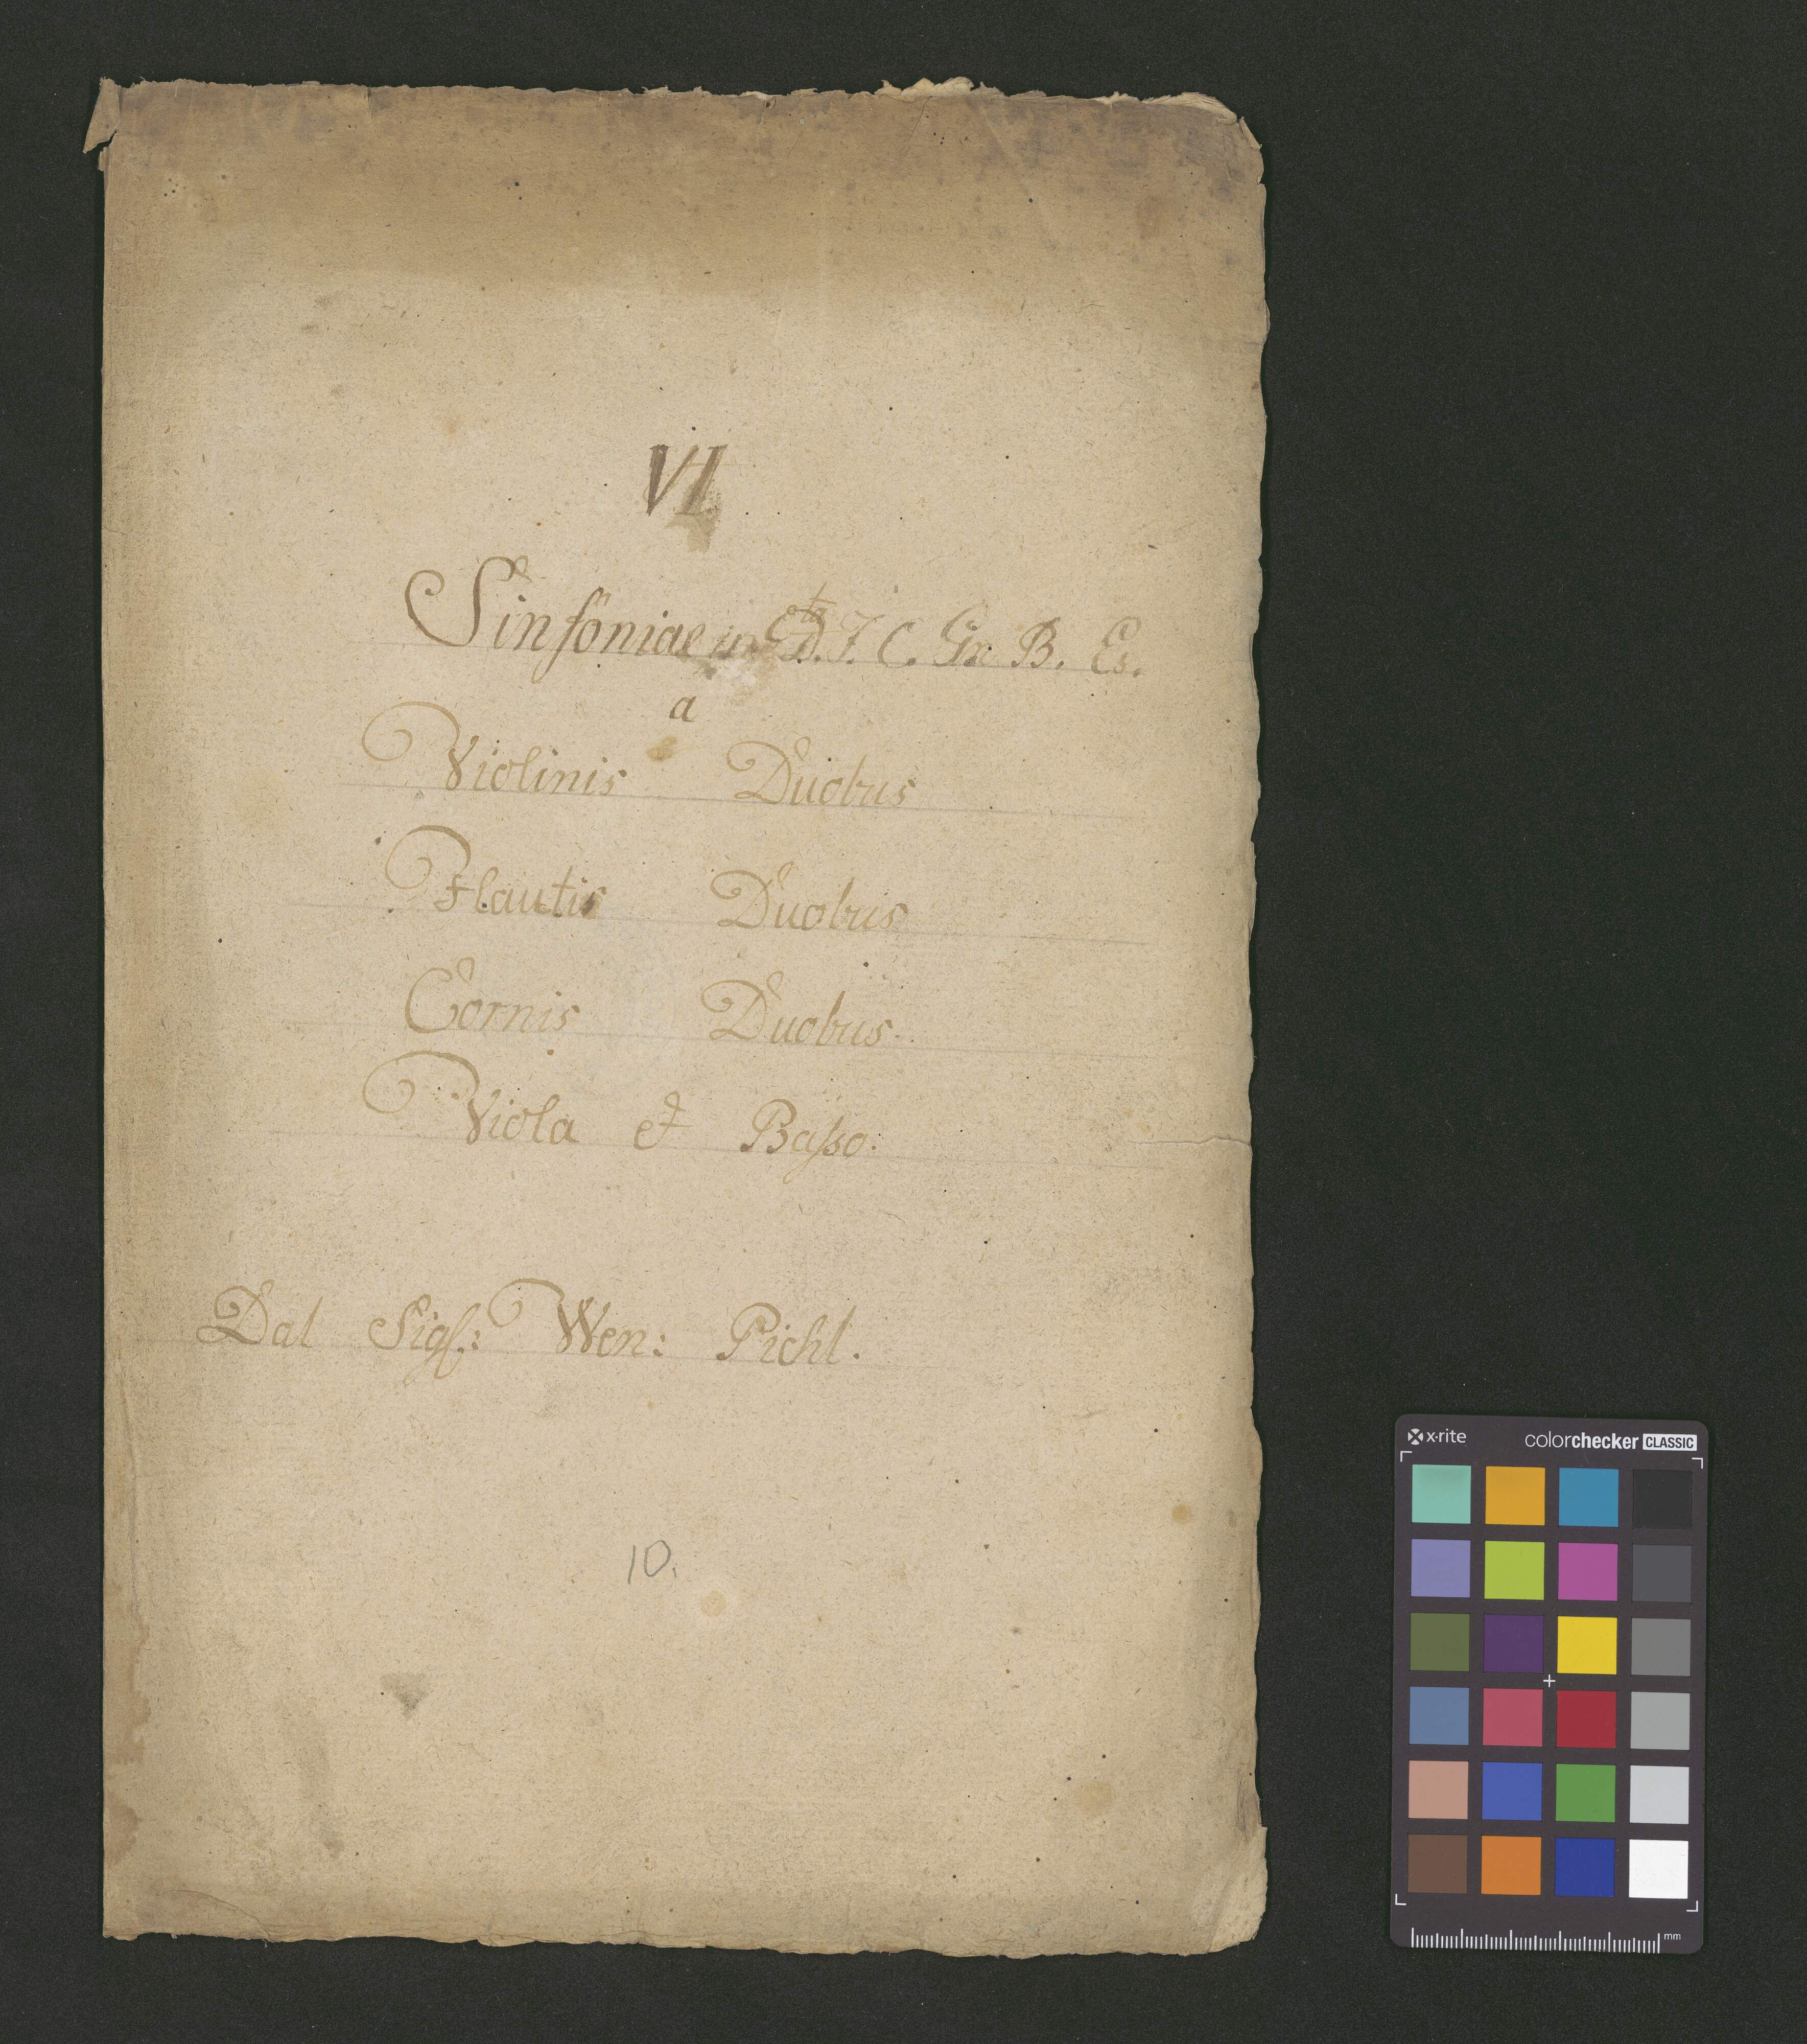 VI
Sinfoniae in D. F. C. G. B. Es.
a
Violinis Duobus
Flautis Duobus
Cornis Duobus.
Viola et Basso.
Dal Sigl: Wen: Pichl.
10.
x·rite colorchecker CLASSIC
mm